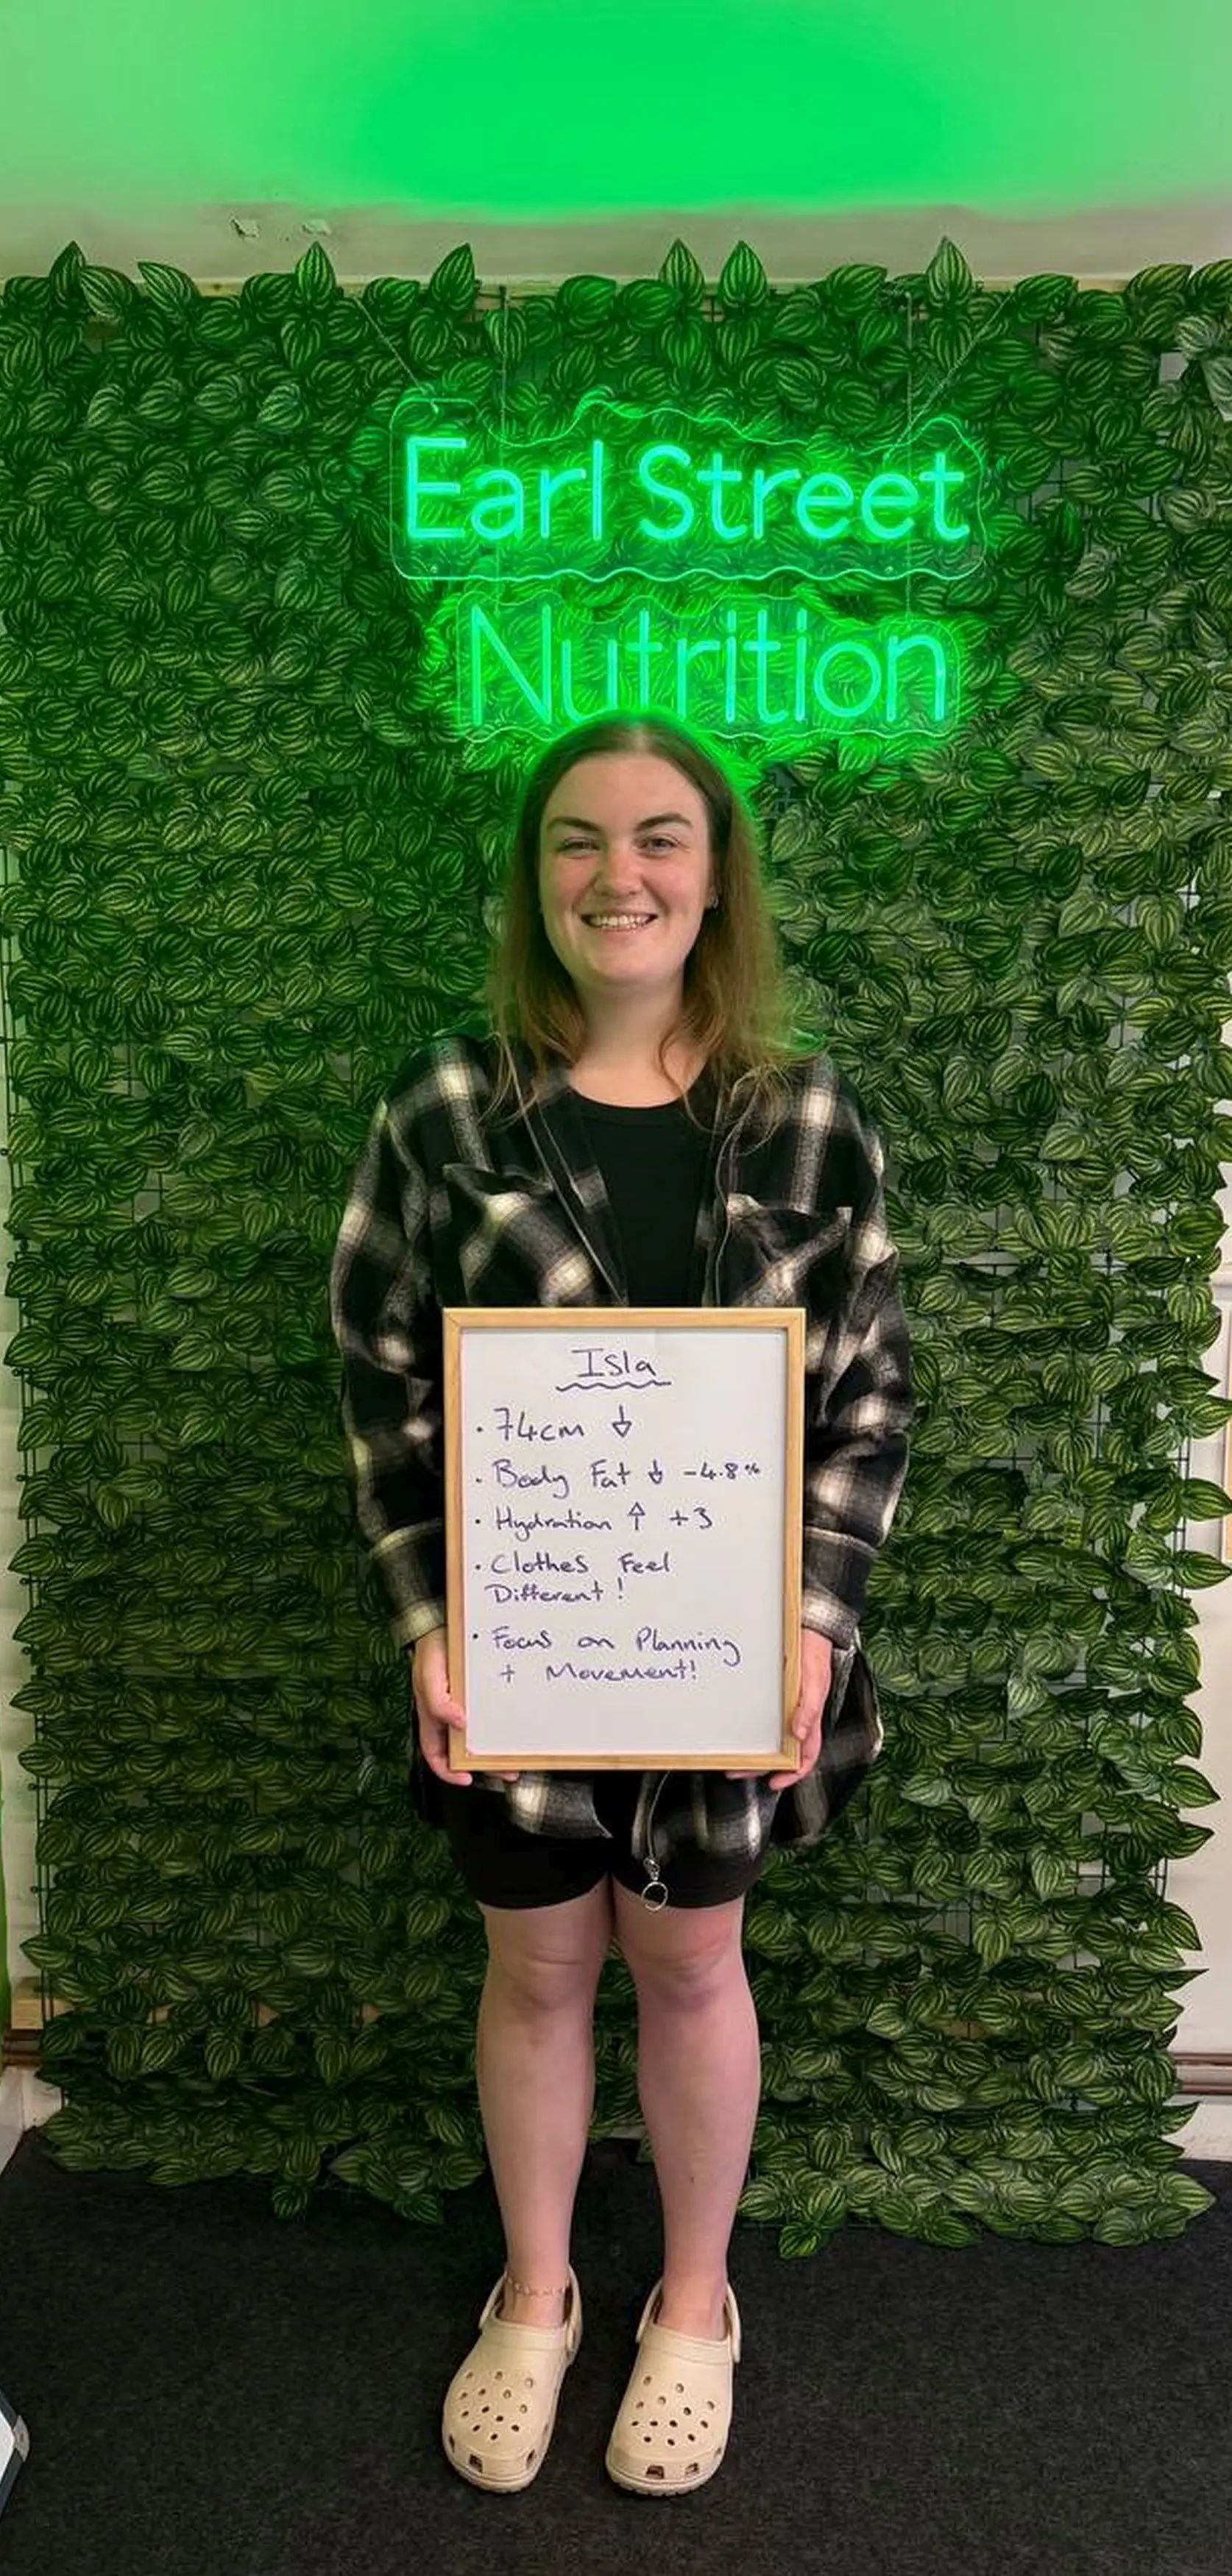 Earl Street
Nutrition
Isla
· 74cm ↓
· Body Fat ↓ -4.8%
· Hydration ↑ +3
· Clothes Feel
Different!
· Focus on Planning
+ Movement!